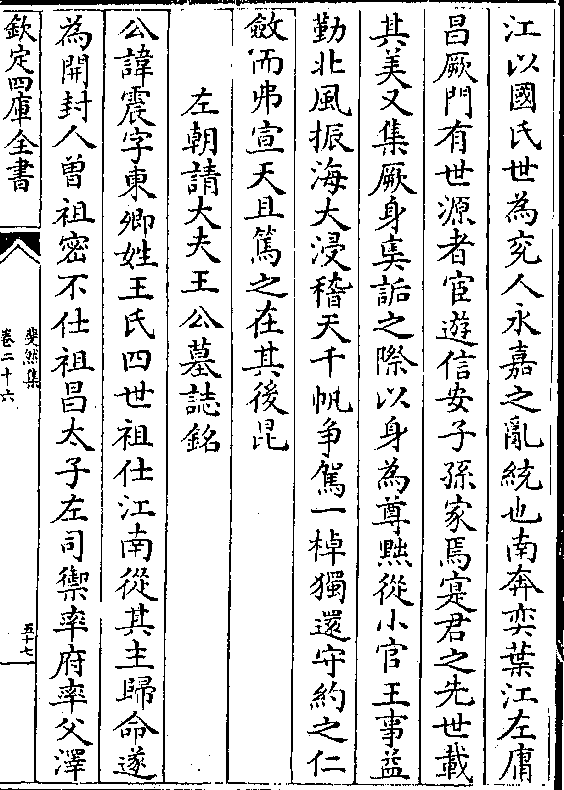 江以國氏世為兖人永嘉之亂統也南奔奕葉江左庸
昌厥門有世源者宦遊信安子孫家焉寔君之先世載
其美又集厥身奚詬之際以身為尊黜從小官王事益
勤北風振海大浸稽天千帆争駕一棹獨還守約之仁
斂而弗宣天且篤之在其後昆
左朝請大夫王公墓誌銘
公諱震字東卿姓王氏四世祖仕江南從其主歸命遂
為開封人曾祖密不仕祖昌太子左司禦率府率父澤
欽定四庫全書
斐然集
卷二十六
五十七